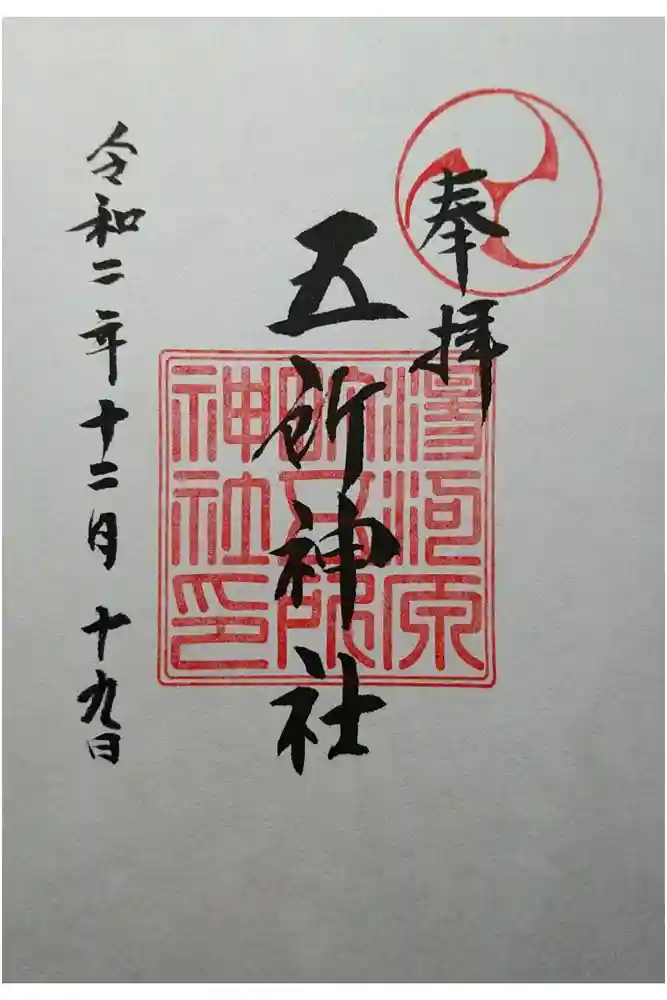 奉拝
五所神社
湯河原
㕝五所
神社印
令和二年十二月十九日